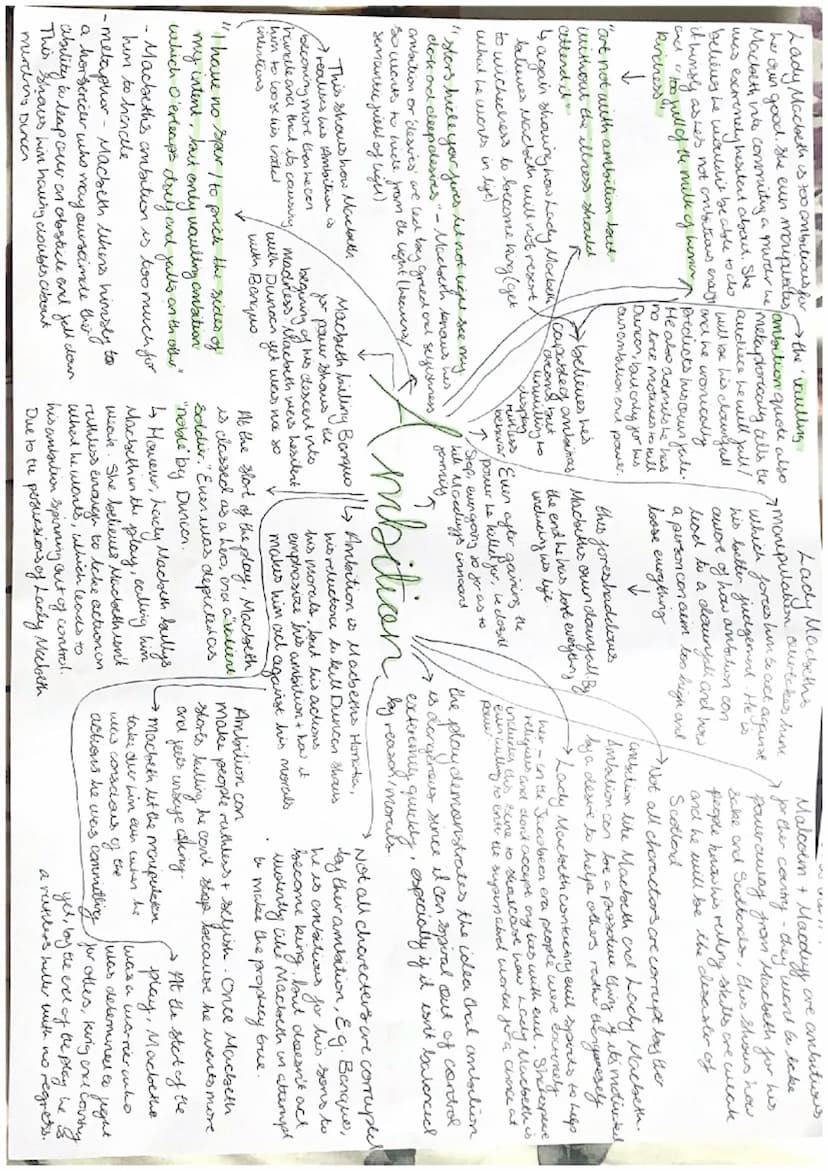 Lady Macbeth is too ambitious for
her own good. She even manipulates
Macbeth into committing a murder he
was extremely hesitant about. She
believes he wouldn't be able to do
it himself as he's not ambitious enough
and "too full of the milk of human
kindness"
"art not without ambition but
without the illness should
attend it"
↳ again showing how Lady Macbeth
believes Macbeth will not resort
to wickedness to become king (get
what he wants in life)
→ believes he's
capable of ambitious
dreams but
unwilling to
display
ruthless
behaviour
"stars hide your fires let not light see my
dark and deep desires" - Macbeth knows his
ambition or desires are led by greed and selfishness
so wants to hide from the light (heavens)
semantic field of light)
This shows how Macbeth
realises his Ambition is
becoming more than he can
handle and that its causing
him to lose his initial
intentions
"I have no spur / to prick the sides of
my intent, but only vaulting ambition
which o'erleaps itself and falls on th'other"
- Macbeths ambition is too much for
him to handle
- metaphor - Macbeth likens himself to
a horserider who may overestimate their
ability to leap over an obstacle and fall down
This shows him having doubts about
murdering Duncan
→ the 'vaulting
ambition' quote also
metaphorically tells the
audience he will fall /
will be his downfall
and he ironically
predicts his own fate.
He also admits he has
no true motives to kill
Duncan, but only for his
own ambition and power.
Macbeth killing Banquo
for power shows the
beginning of his descent into
madness. Macbeth was hesitant
with Duncan yet was not so
with Banquo
Ambition
At the start of the play, Macbeth
is classed as a hero, and a "valiant
soldier." Even was depicted as
"noble" by Duncan.
↳ However, Lady Macbeth bullys
Macbeth in the play, calling him
weak. She believes Macbeth isn't
ruthless enough to take action on
what he wants, which leads to
his ambition spinning out of control.
Due to the persuasions of Lady Macbeth
Lady Macbeths
manipulation overtakes him
which forces him to act against
his better judgement. He is
aware of how ambition can
lead to a downfall and how
a person can aim too high and
loose everything
this foreshadows
Macbeths own downfall. By
the end he has lost everything
including his life
Even after gaining the
power he killed for, he doesn't
stop, even going so far as to
kill Macduff's innocent
family
↳ Ambition is Macbeths Hamartia,
his reluctance to kill Duncan shows
his morals, but his actions
emphasise his ambition & how it
makes him act against his morals
the play demonstrates the idea that ambition
is dangerous since it can spiral out of control
extremely quickly, especially if it isn't balanced
by reason/morals.
Ambition can
make people ruthless + selfish. Once Macbeth
starts killing he can't stop because he wants more
and feels unsafe as king
→ Macbeth let the manipulation
take over him even when he
was conscious of the
actions he was committing
Malcolm + Macduff are ambitious
for their country - they want to take
power away from Macbeth for his
sake and Scotlands. This shows how
people know his ruling skills are weak
and he will be the disaster of
Scotland
Not all characters are corrupt by their
ambition like Macbeth and Lady Macbeth.
Ambition can be a positive thing if its motivated
by a desire to help others rather than yourself
Lady Macbeth contacting evil spirits to help
her - in the Jacobean era people were extremely
religious and didn't accept any ties with evil. Shakespeare
includes this scene to showcase how Lady Macbeth is
even willing to enter the supernatural world for a chance at
power.
Not all characters are corrupted
by their ambition, E.g. Banquo,
he is ambitious for his sons to
become king, but doesn't act
violently like Macbeth in attempt
to make the prophecy true.
→ At the start of the
play, Macbeth
was a warrior who
was determined to fight
for others, king and country
yet, by the end of the play he is
a ruthless killer with no regrets.